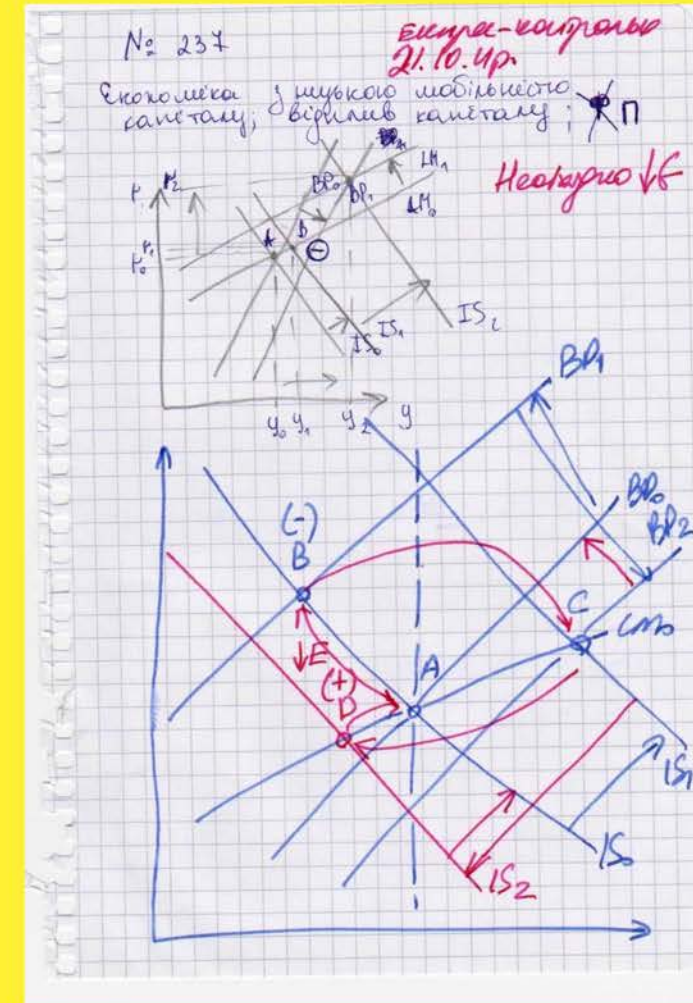 № 237
Експрес-контрольна
21.10.11р.
Економіка з низькою мобільністю
капіталу; відплив капіталу; П
Необхідно ↓E
r r₂ BP₀ BP₁ LM₁
LM₀
A B ⊖
r₀ r₁
IS₀ IS₁ IS₂
y₀ y₁ y₂ y
BP₁
BP₀
BP₂
(-)
B
C
LM₀
↓E
A
(+)
D
IS₁
IS₀
IS₂